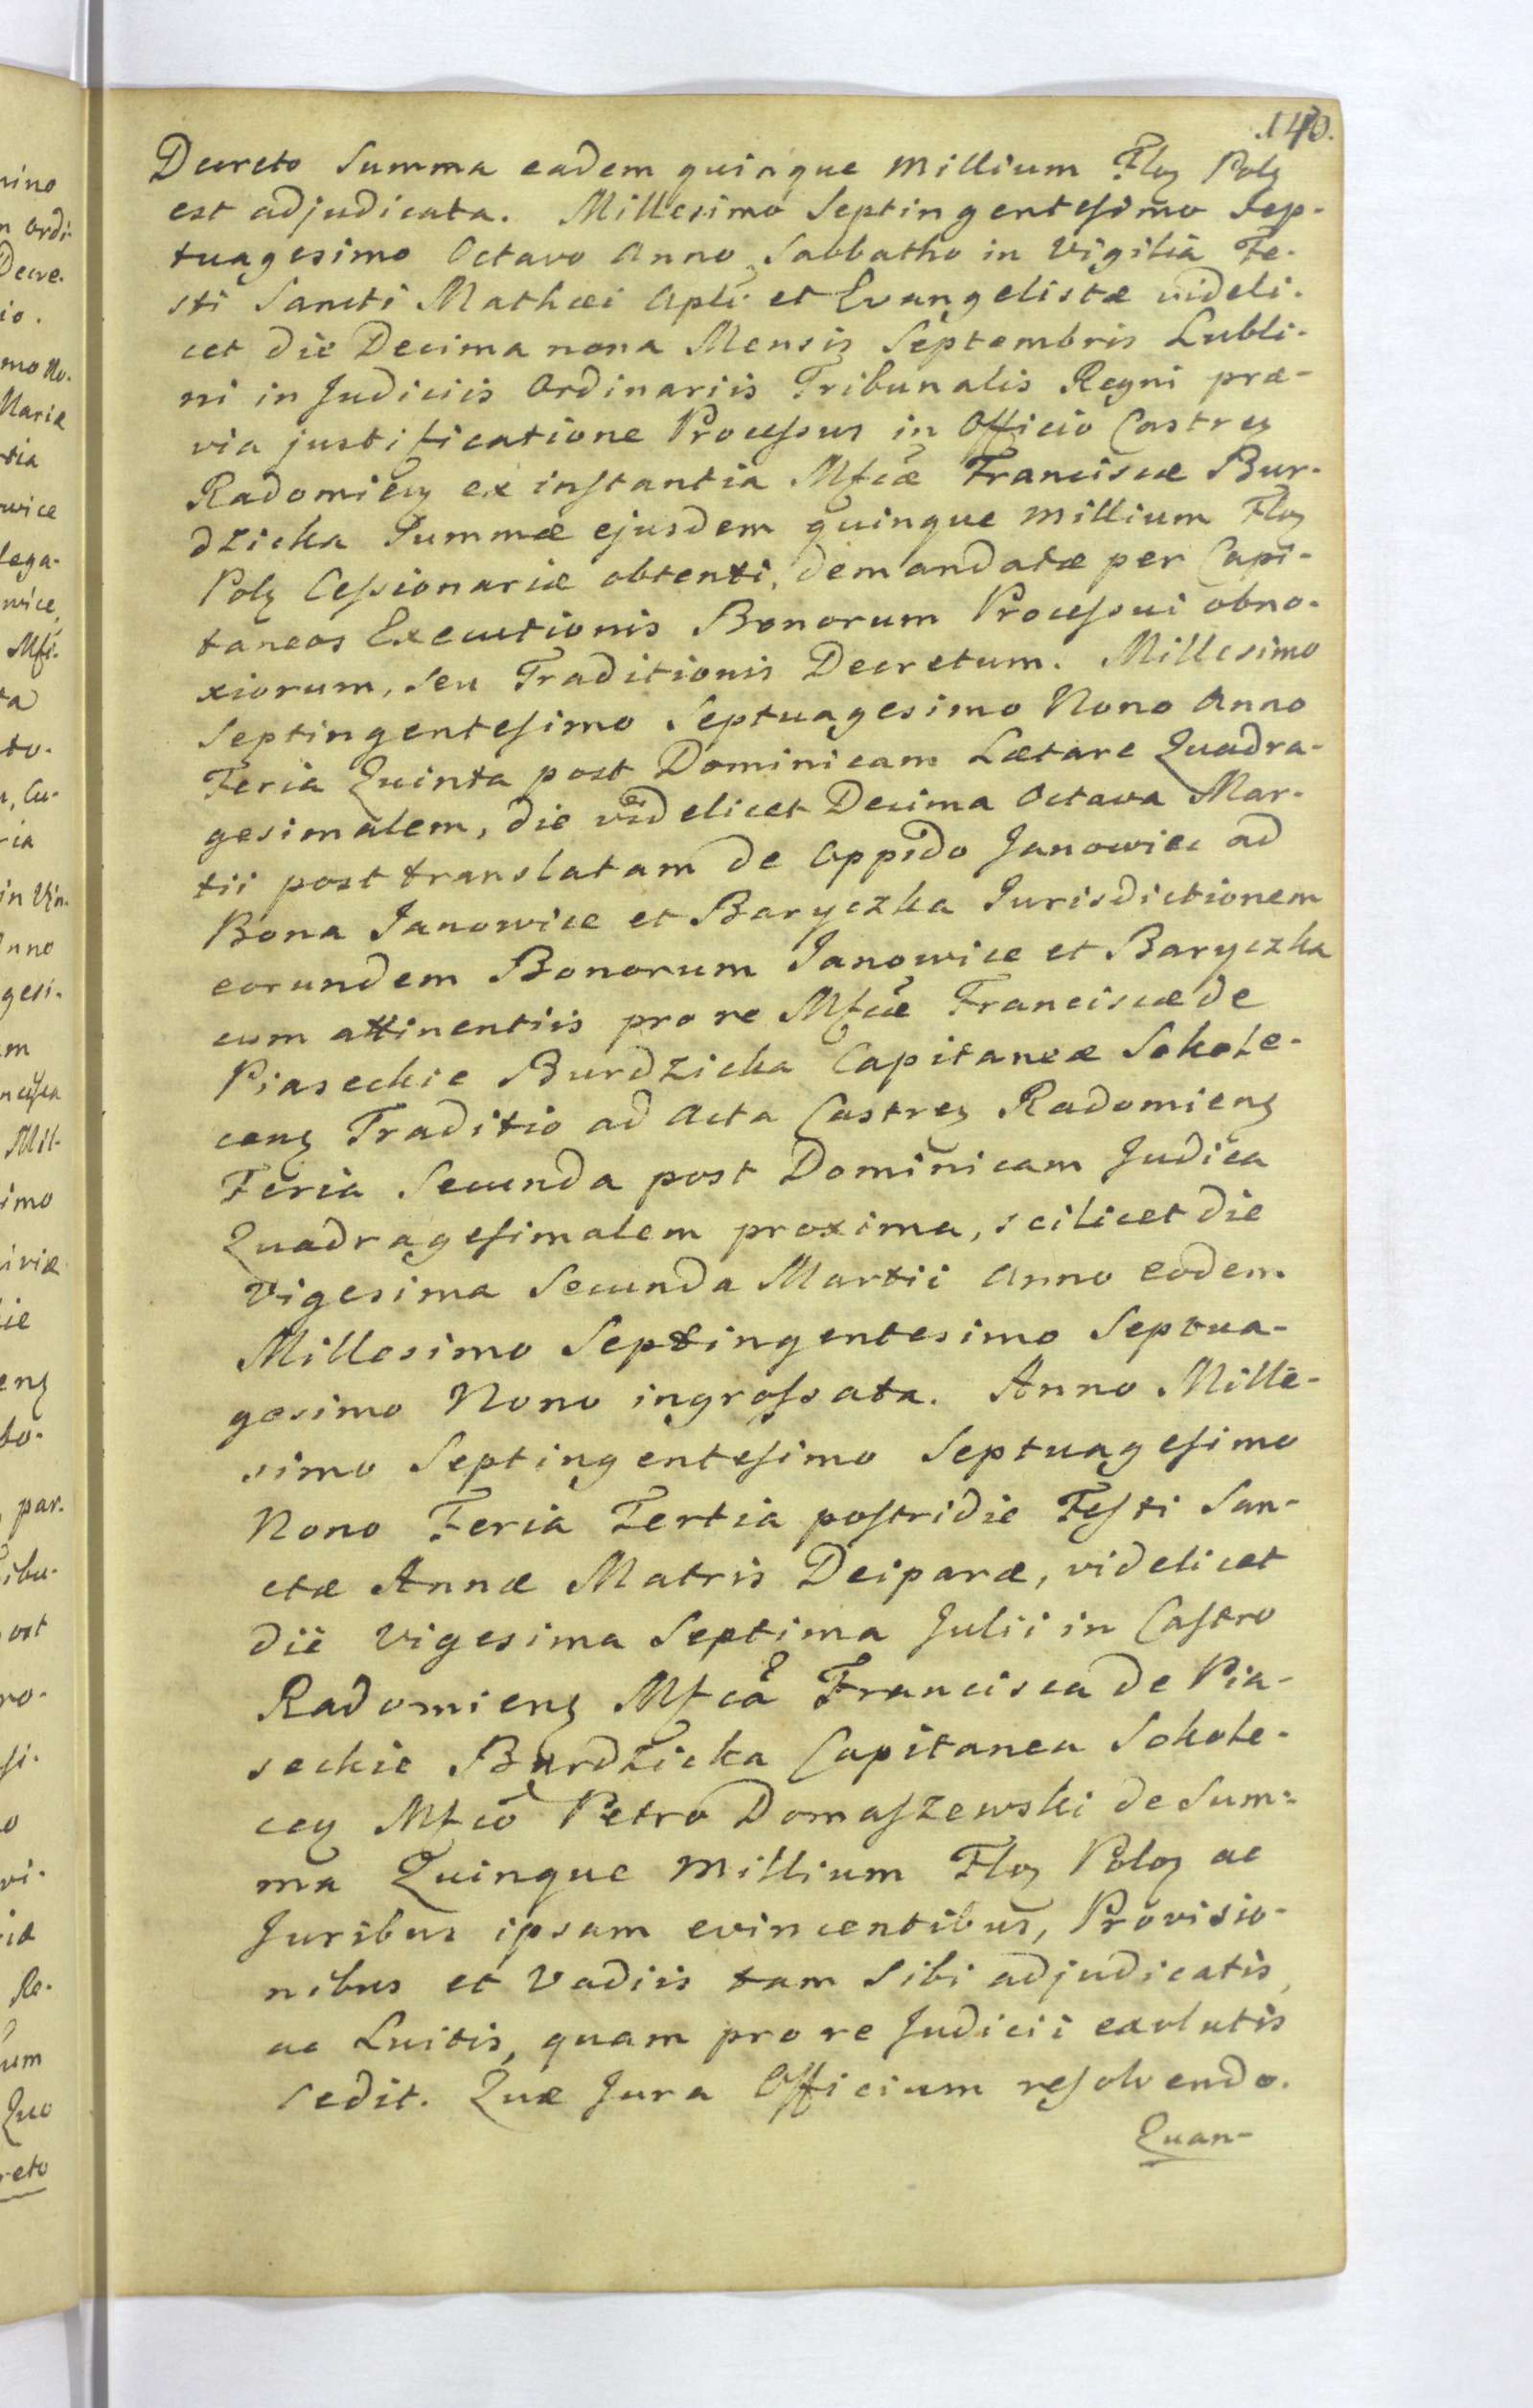 140.
Decreto Summa eadem quinque millium Floz Polz
est adjudicata. Millesimo Septingentesimo Sep-
tuagesimo Octavo Anno Sabbatho in Vigilia Fe-
sti Sancti Mathæi Apli et Evangelistæ videli-
cet die Decima nona Mensis Septembris Lubli-
ni in Judiciis Ordinariis Tribunalis Regni præ-
via justificatione Processus in Officio Castrez
Radomienz ex instantia Mfcæ Franciscæ Bur-
dzicka Summæ ejusdem quinque millium Floz
Polz Cessionariæ obtenti, demandatæ per Capi-
taneos Executionis Bonorum Processui obno-
xiorum, seu Traditionis Decretum. Millesimo
Septingentesimo Septuagesimo Nono Anno
Feria Quinta post Dominicam Lætare Quadra-
gesimalem, die videlicet Decima Octava Mar-
tii post translatam de Oppido Janowiec ad
Bona Janowice et Baryczka Jurisdictionem
eorundem Bonorum Janowice et Baryczka
cum attinentiis pro re Mfcæ Franciscæ de
Piaseckie Burdzicka Capitaneæ Sokole-
cenz Traditio ad Acta Castrez Radomienz
Feria Secunda post Dominicam Judica
Quadragesimalem proxima, scilicet die
Vigesima Secunda Martii Anno eodem
Millesimo Septingentesimo Septua-
gesimo Nono ingrossata. Anno Mille-
simo Septingentesimo Septuagesimo
Nono Feria Tertia postridie Festi San-
ctæ Annæ Matris Deiparæ, videlicet
die Vigesima Septima Julii in Castro
Radomienz Mfca Francisca de Pia-
seckie Burdzicka Capitanea Sokole-
cez Mfco Petro Domaszewski de Sum-
ma Quinque millium Floz Poloz ac
Juribus ipsam evincentibus, Provisio-
nibus et Vadiis tam sibi adjudicatis,
ac Luitis, quam pro re Judicii exolutis
cedit. Quæ Jura Officium resolvendo.
Quan-